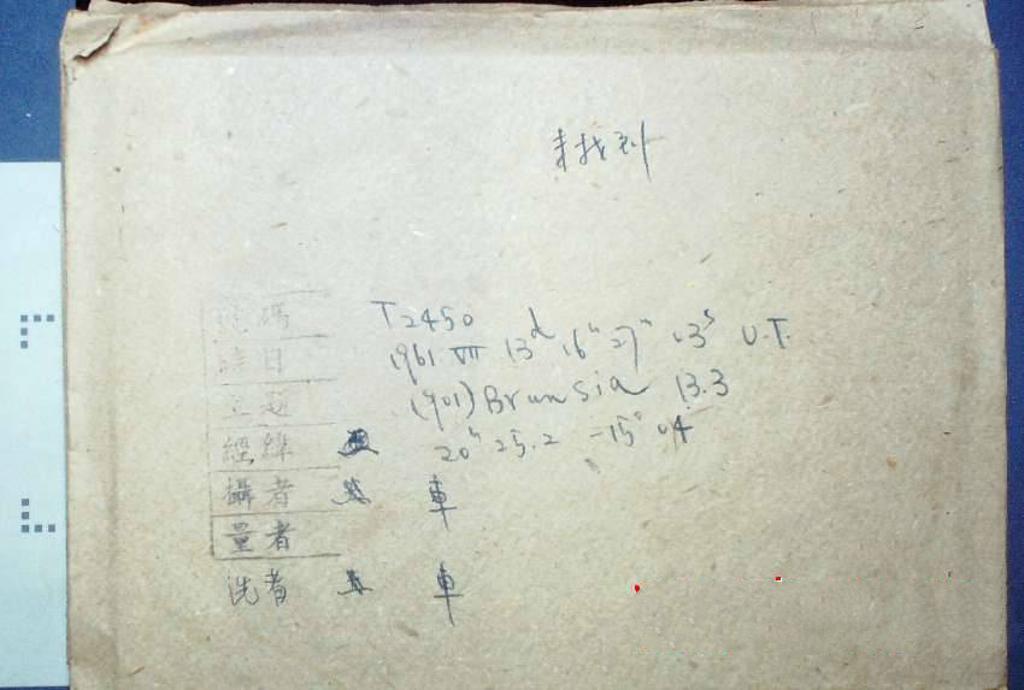 未找到
號碼 T2450
時日 1961 VII 13d 16h 27m 13s U.T.
主題 (901) Brunsia 13.3
經緯 20h 25.2 -15° 04
攝者 車
量者
洗者 車